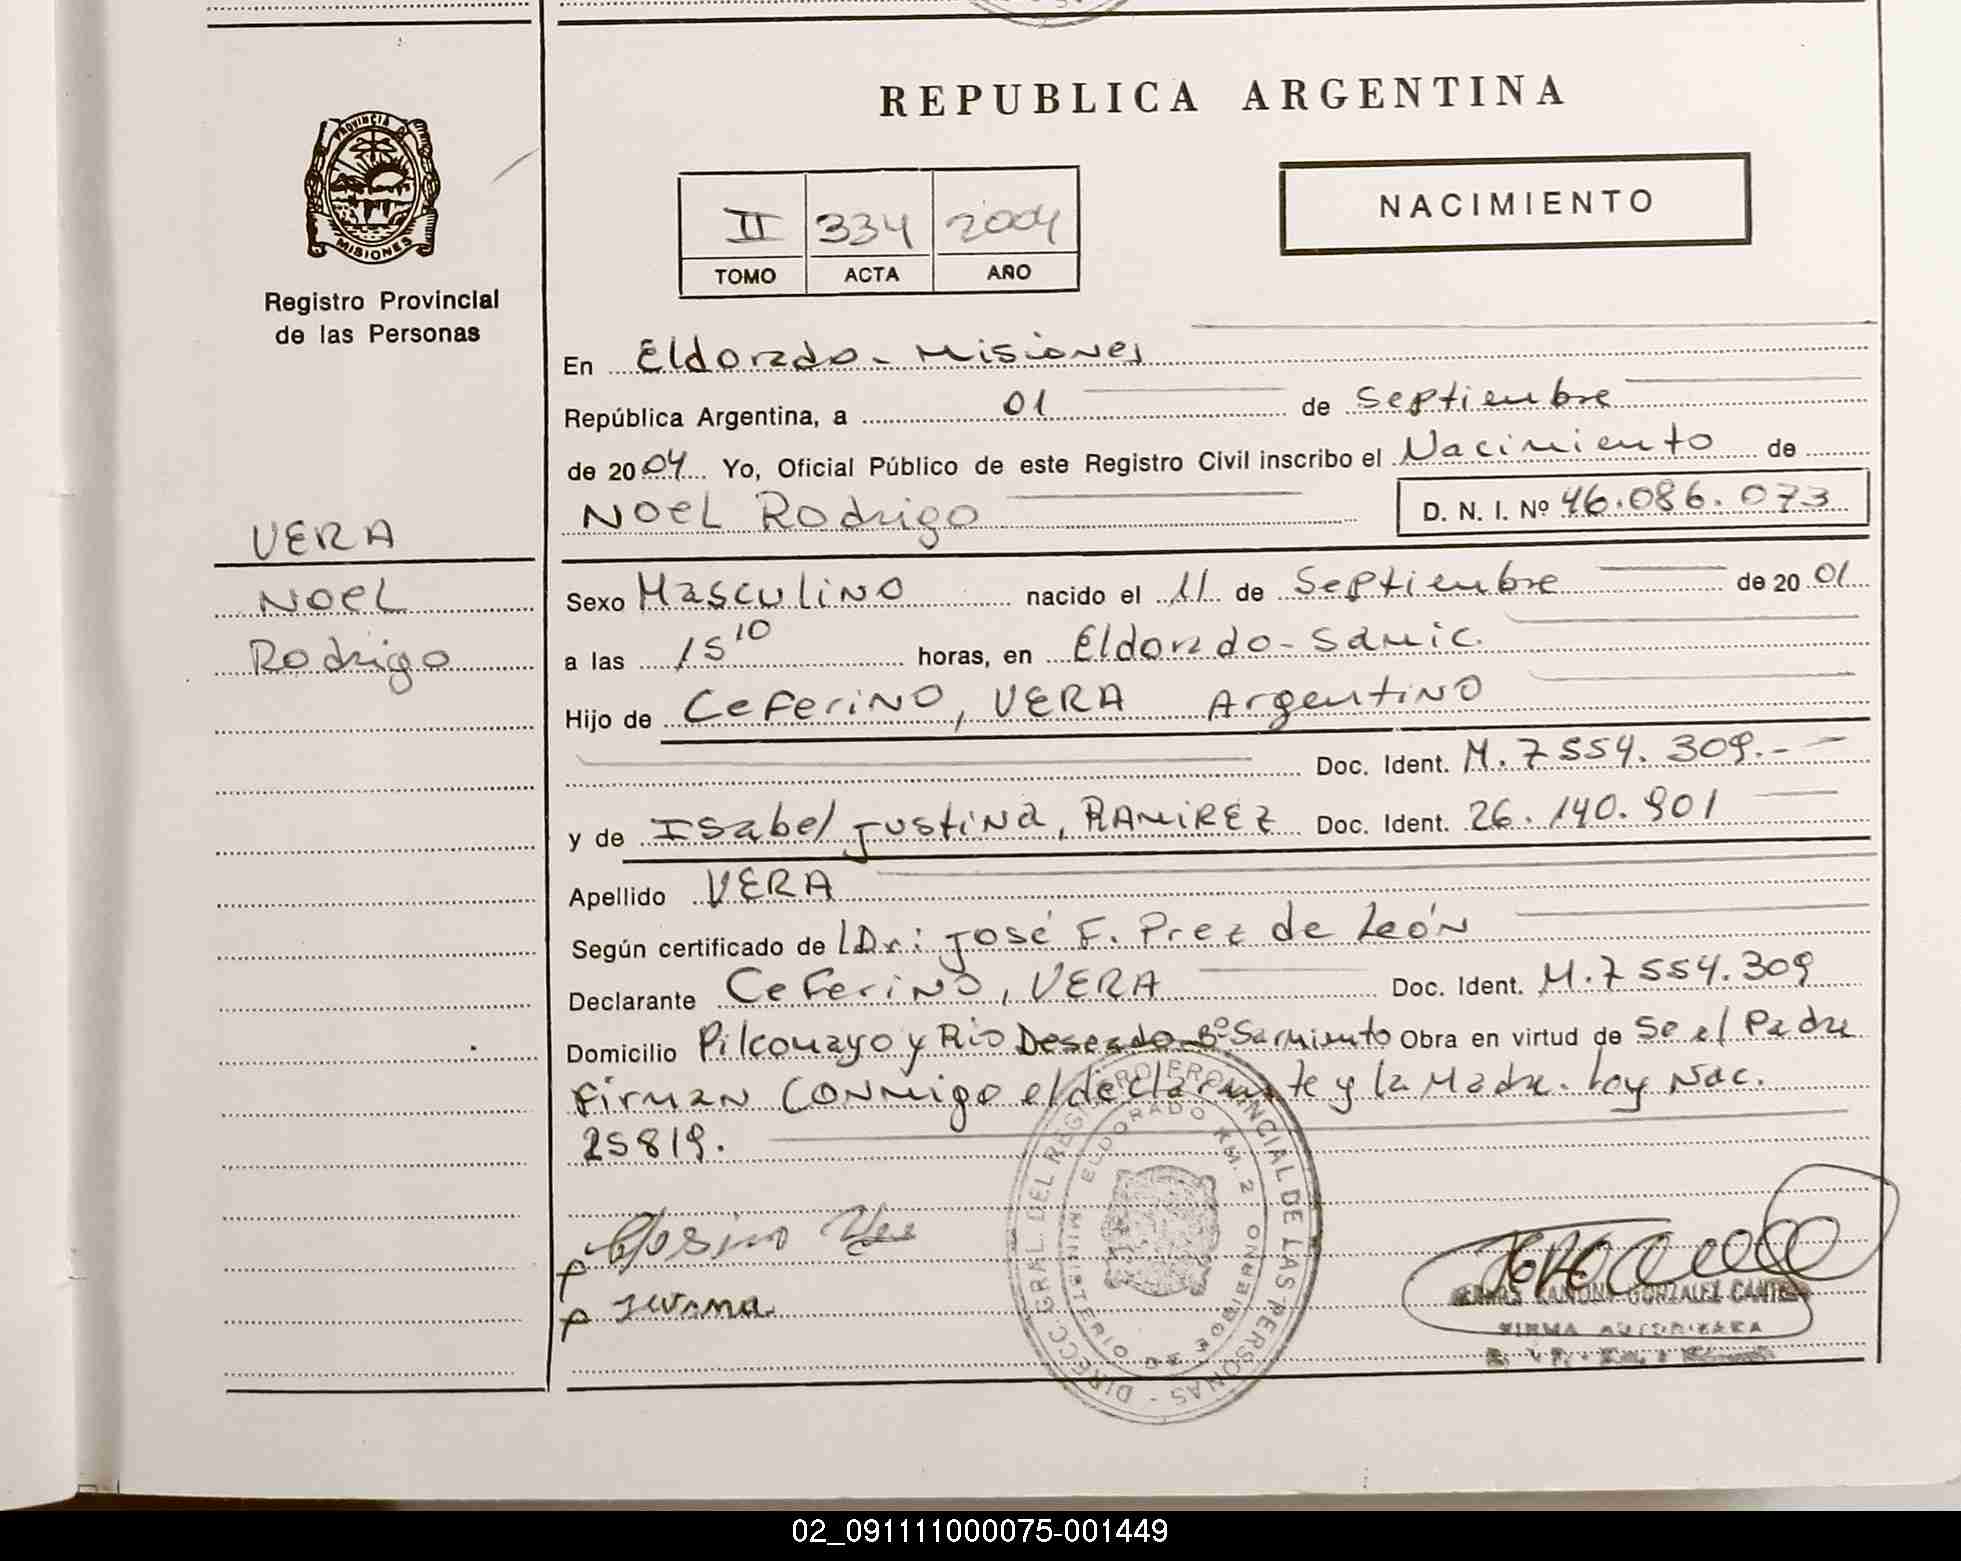 REPUBLICA ARGENTINA
PROVINCIA DE
MISIONES
Registro Provincial
de las Personas
II 334 2004
TOMO ACTA AÑO
NACIMIENTO
En Eldorado - Misiones
República Argentina, a 01 de Septiembre
de 2004 Yo, Oficial Público de este Registro Civil inscribo el Nacimiento de
Noel Rodrigo D. N. I. Nº 46.086.073
VERA
Noel
Rodrigo
Sexo Masculino nacido el 11 de Septiembre de 2001
a las 15 10 horas, en Eldorado - Samic.
Hijo de Ceferino, VERA Argentino
Doc. Ident. M. 7 554. 309.-
y de Isabel Justina, RAMIREZ Doc. Ident. 26. 140. 901
Apellido VERA
Según certificado de Dr: José F. Prez de León
Declarante Ceferino, VERA Doc. Ident. M. 7 554. 309
Domicilio Pilcomayo y Rio Deseado Bº Sarmiento Obra en virtud de Se el Padre
Firman conmigo el declarante y la Madre. Ley Nac.
25819.
DIRECC. GRAL. DEL REGISTRO PROVINCIAL DE LAS PERSONAS
MINISTERIO DE GOBIERNO ELDORADO KM. 2
RAMONA GONZALEZ
FIRMA AUTORIZADA
02_091111000075-001449